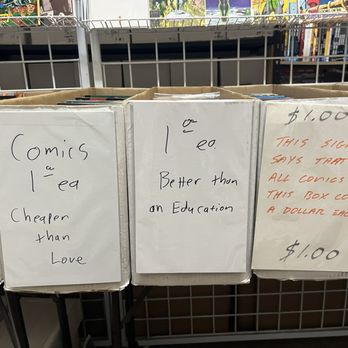 Comics
1 00 ea
Cheaper
than
Love
1 00 ea
Better than
an Education
$1.00
THIS SIG
SAYS THAT
ALL COMICS
THIS BOX CO
A DOLLAR EAC
$1.00